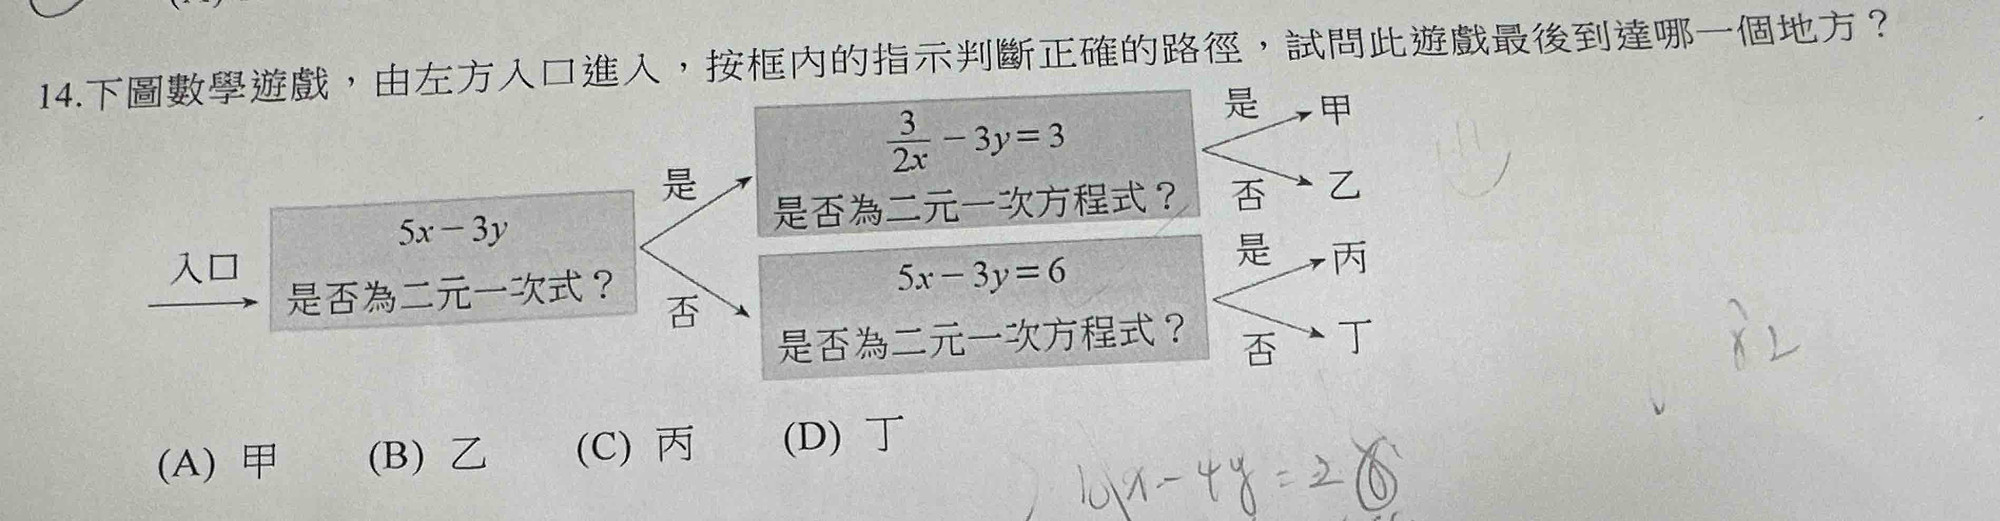 14.下圖數學遊戲，由左方入口進入，按框內的指示判斷正確的路徑，試問此遊戲最後到達哪一個地方？
入口
5x－3y
是否為二元一次式？
是
否
3/2x －3y＝3
是否為二元一次方程式？
是
甲
否
乙
5x－3y＝6
是否為二元一次方程式？
是
丙
否
丁
(A) 甲 (B) 乙 (C) 丙 (D) 丁